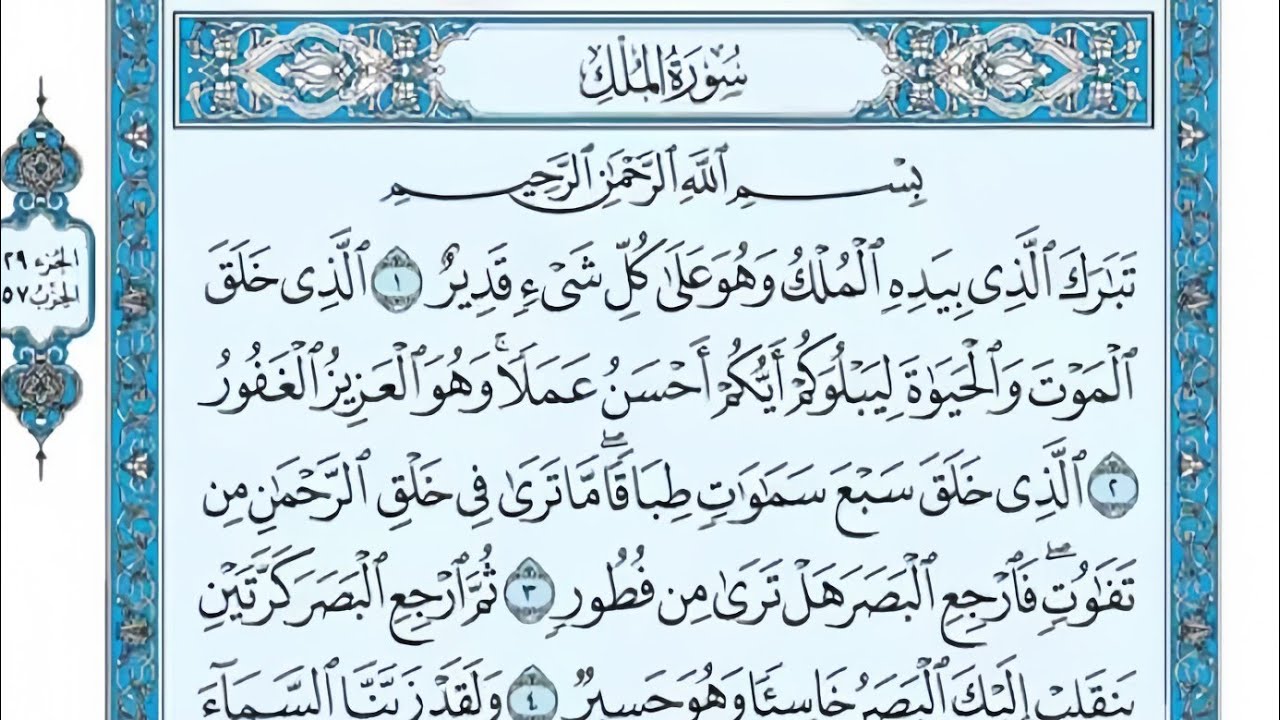 سُورَةُ المُلْكِ
بِسْمِ ٱللَّهِ ٱلرَّحْمَٰنِ ٱلرَّحِيمِ
تَبَٰرَكَ ٱلَّذِى بِيَدِهِ ٱلْمُلْكُ وَهُوَ عَلَىٰ كُلِّ شَىْءٍ قَدِيرٌ ١ ٱلَّذِى خَلَقَ
ٱلْمَوْتَ وَٱلْحَيَوٰةَ لِيَبْلُوَكُمْ أَيُّكُمْ أَحْسَنُ عَمَلًاۚ وَهُوَ ٱلْعَزِيزُ ٱلْغَفُورُ
٢ ٱلَّذِى خَلَقَ سَبْعَ سَمَٰوَٰتٍ طِبَاقًاۖ مَّا تَرَىٰ فِى خَلْقِ ٱلرَّحْمَٰنِ مِن
تَفَٰوُتٍۖ فَٱرْجِعِ ٱلْبَصَرَ هَلْ تَرَىٰ مِن فُطُورٍ ٣ ثُمَّ ٱرْجِعِ ٱلْبَصَرَ كَرَّتَيْنِ
يَنقَلِبْ إِلَيْكَ ٱلْبَصَرُ خَاسِئًا وَهُوَ حَسِيرٌ ٤ وَلَقَدْ زَيَّنَّا ٱلسَّمَآءَ
الجزء ٢٩
الحزب ٥٧